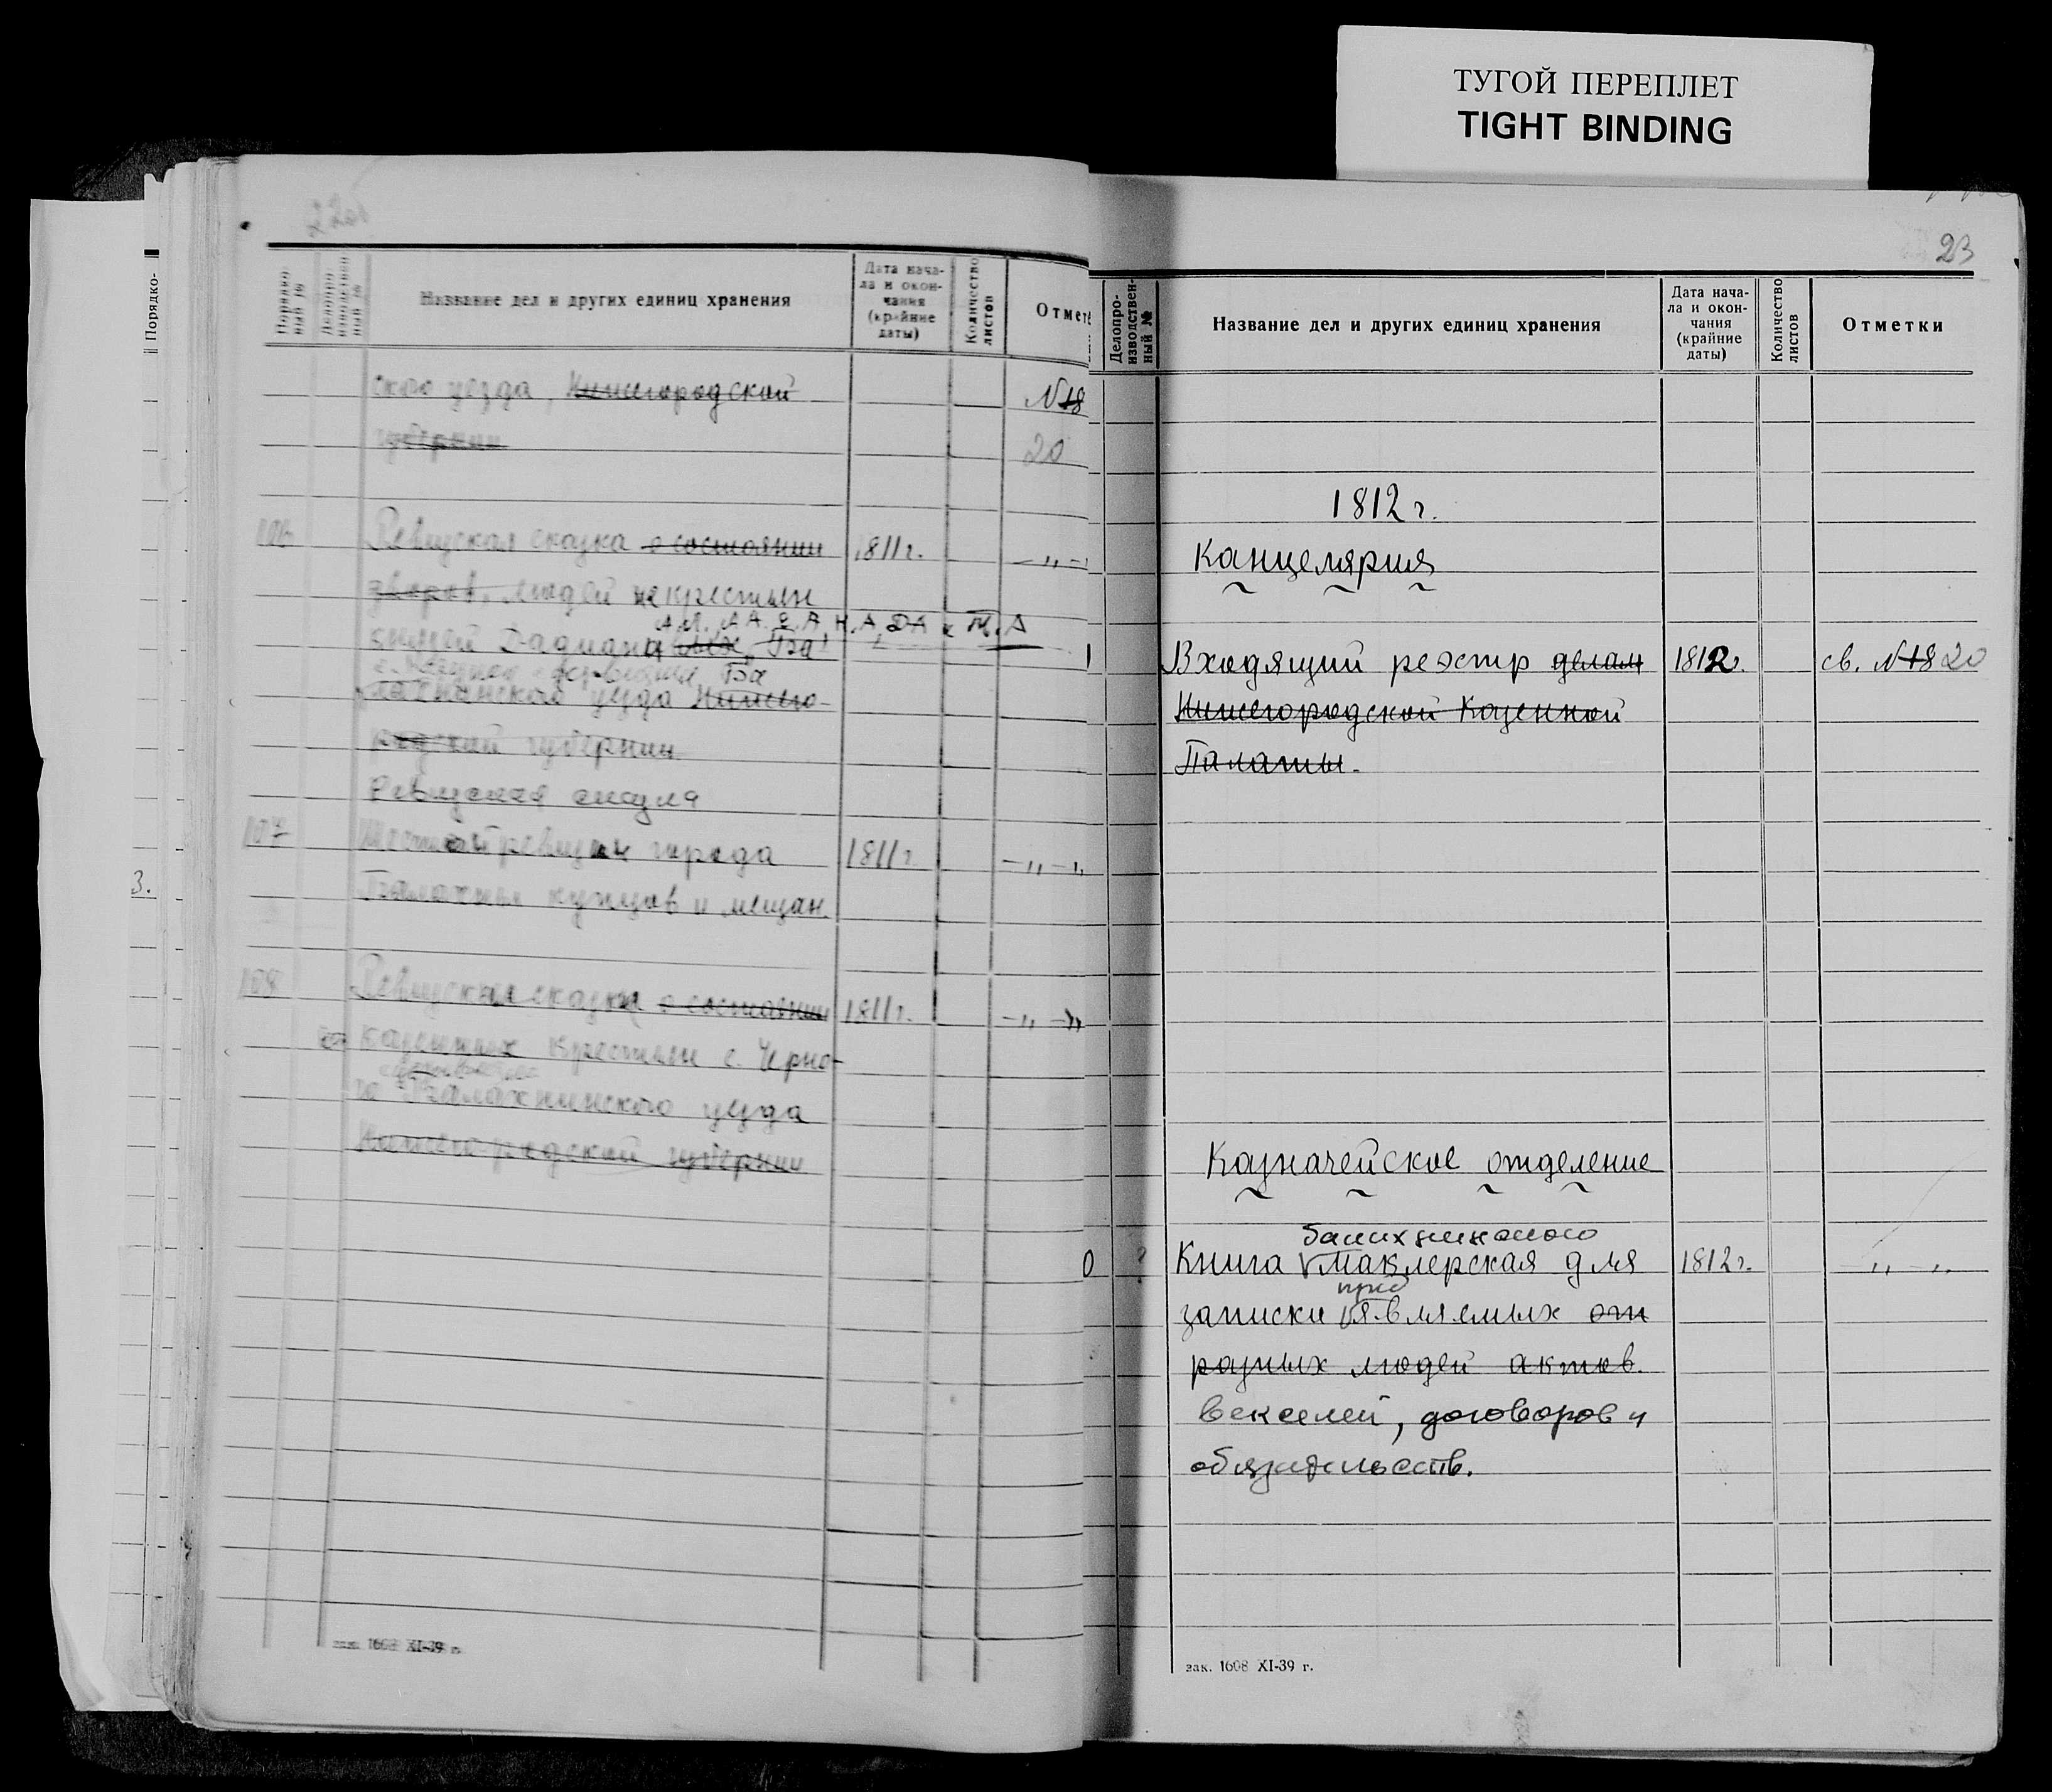 ТУГОЙ ПЕРЕПЛЕТ
TIGHT BINDING
Порядко-
3.
22об
Порядко-
вый №
Делопро-
изводствен-
ный №
Название дел и других единиц хранения
Дата нача-
ла и окон-
чания
(крайние
даты)
Количество
листов
Отмет
ского уезда, Нижегородской
N 18
губернии
20
106
Ревизская сказка о состоянии
1811 г.
— „ —
дворов. людей и крестьян
А.Л. А.А. Е.А. Н.А. Д.А. и Т.А
князей Дадиана Ба
Ба
лахнинского уезда Нижего-
родской губернии
Ревизская сказка
107
Шестой ревизии города
1811 г.
— „ — „
Балахны купцов и мещан
108
Ревизская сказка о состоянии
1811 г.
— „ — „
казенных крестьян с. Черно-
го Балахнинского уезда
Нижегородской губернии
зак. 1608 XI-39 г.
23
Делопро-
изводствен-
ный №
Название дел и других единиц хранения
Дата нача-
ла и окон-
чания
(крайние
даты)
Количество
листов
Отметки
1812 г.
Канцелярия
Входящий реэстр делам
1812 г.
св. N 18 20
Нижегородской Казенной
Палаты.
Казначейское отделение
балахнинского
0 ? Книга маклерская для
1812 г.
— „ — „
пред
записки являемых от
разных людей актов.
векселей, договоров и
обязательств.
зак. 1608 XI-39 г.